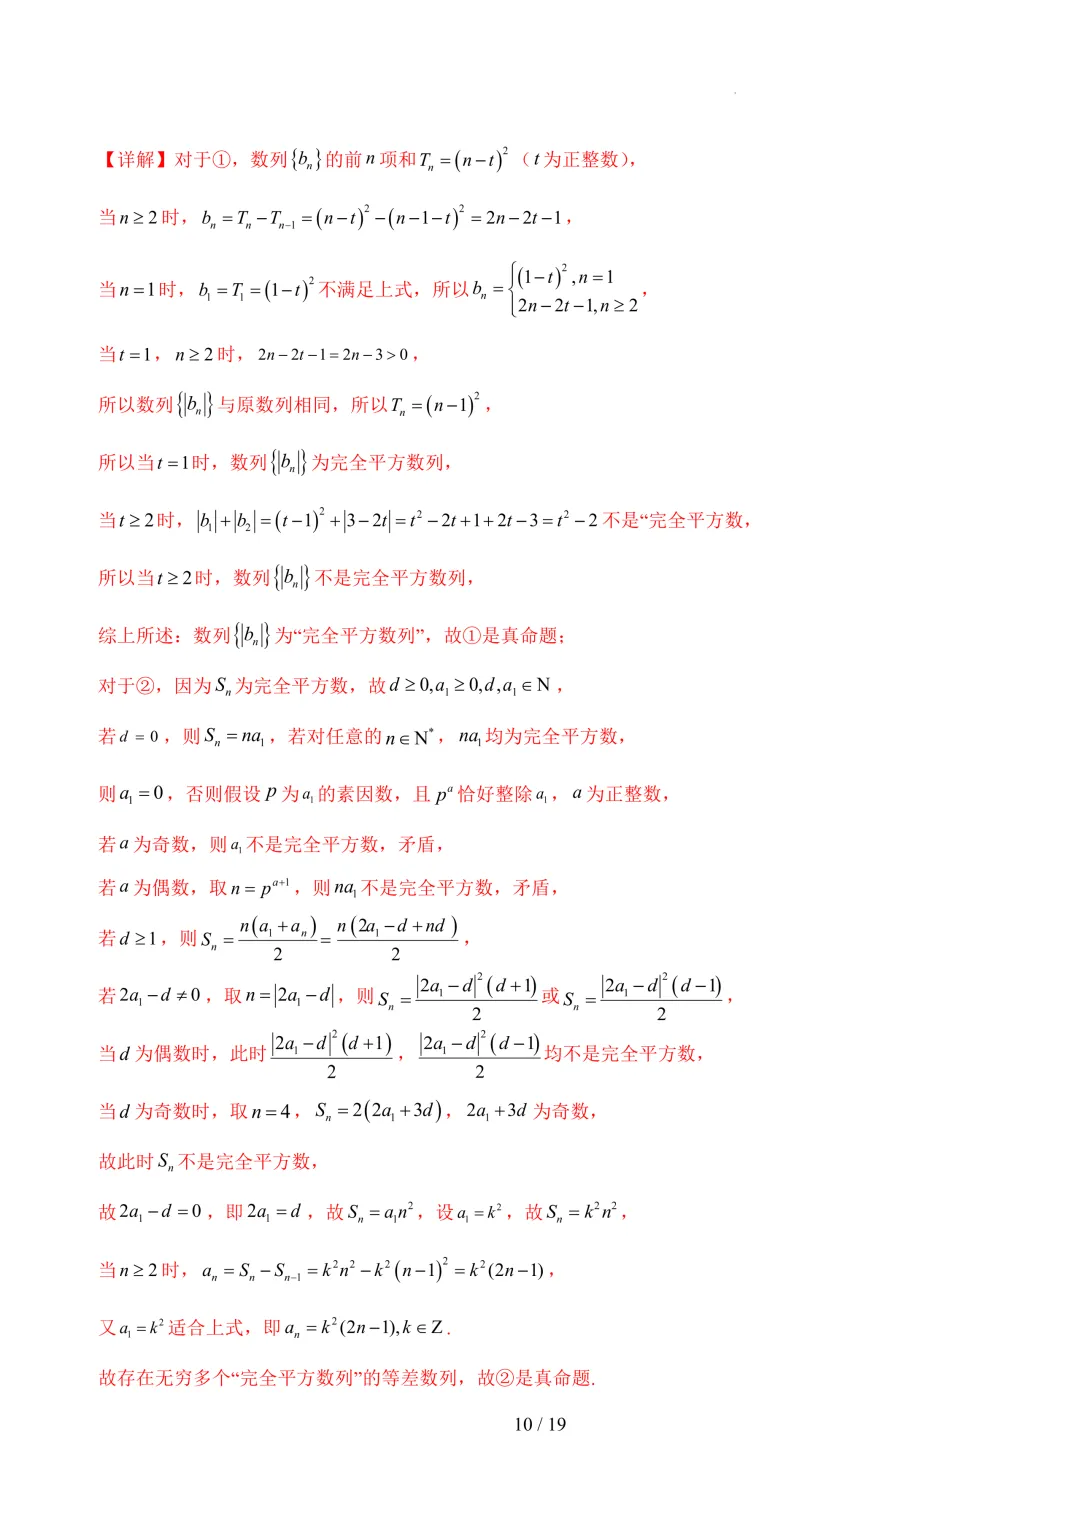 【详解】对于①，数列{bₙ}的前n项和Tₙ=(n−t)²（t为正整数），
当n≥2时，bₙ=Tₙ−Tₙ₋₁=(n−t)²−(n−1−t)²=2n−2t−1，
当n=1时，b₁=T₁=(1−t)²不满足上式，所以bₙ={(1−t)²,n=1 2n−2t−1,n≥2，
当t=1，n≥2时，2n−2t−1=2n−3>0，
所以数列{|bₙ|}与原数列相同，所以Tₙ=(n−1)²，
所以当t=1时，数列{|bₙ|}为完全平方数列，
当t≥2时，|b₁|+|b₂|=(t−1)²+|3−2t|=t²−2t+1+2t−3=t²−2不是“完全平方数，
所以当t≥2时，数列{|bₙ|}不是完全平方数列，
综上所述：数列{|bₙ|}为“完全平方数列”，故①是真命题；
对于②，因为Sₙ为完全平方数，故d≥0,a₁≥0,d,a₁∈N，
若d=0，则Sₙ=na₁，若对任意的n∈N*，na₁均为完全平方数，
则a₁=0，否则假设p为a₁的素因数，且pᵃ恰好整除a₁，a为正整数，
若a为奇数，则a₁不是完全平方数，矛盾，
若a为偶数，取n=pᵃ⁺¹，则na₁不是完全平方数，矛盾，
若d≥1，则Sₙ=n(a₁+aₙ)/2=n(2a₁−d+nd)/2，
若2a₁−d≠0，取n=|2a₁−d|，则Sₙ=|2a₁−d|²(d+1)/2或Sₙ=|2a₁−d|²(d−1)/2，
当d为偶数时，此时|2a₁−d|²(d+1)/2，|2a₁−d|²(d−1)/2均不是完全平方数，
当d为奇数时，取n=4，Sₙ=2(2a₁+3d)，2a₁+3d为奇数，
故此时Sₙ不是完全平方数，
故2a₁−d=0，即2a₁=d，故Sₙ=a₁n²，设a₁=k²，故Sₙ=k²n²，
当n≥2时，aₙ=Sₙ−Sₙ₋₁=k²n²−k²(n−1)²=k²(2n−1)，
又a₁=k²适合上式，即aₙ=k²(2n−1),k∈Z.
故存在无穷多个“完全平方数列”的等差数列，故②是真命题.
10 / 19